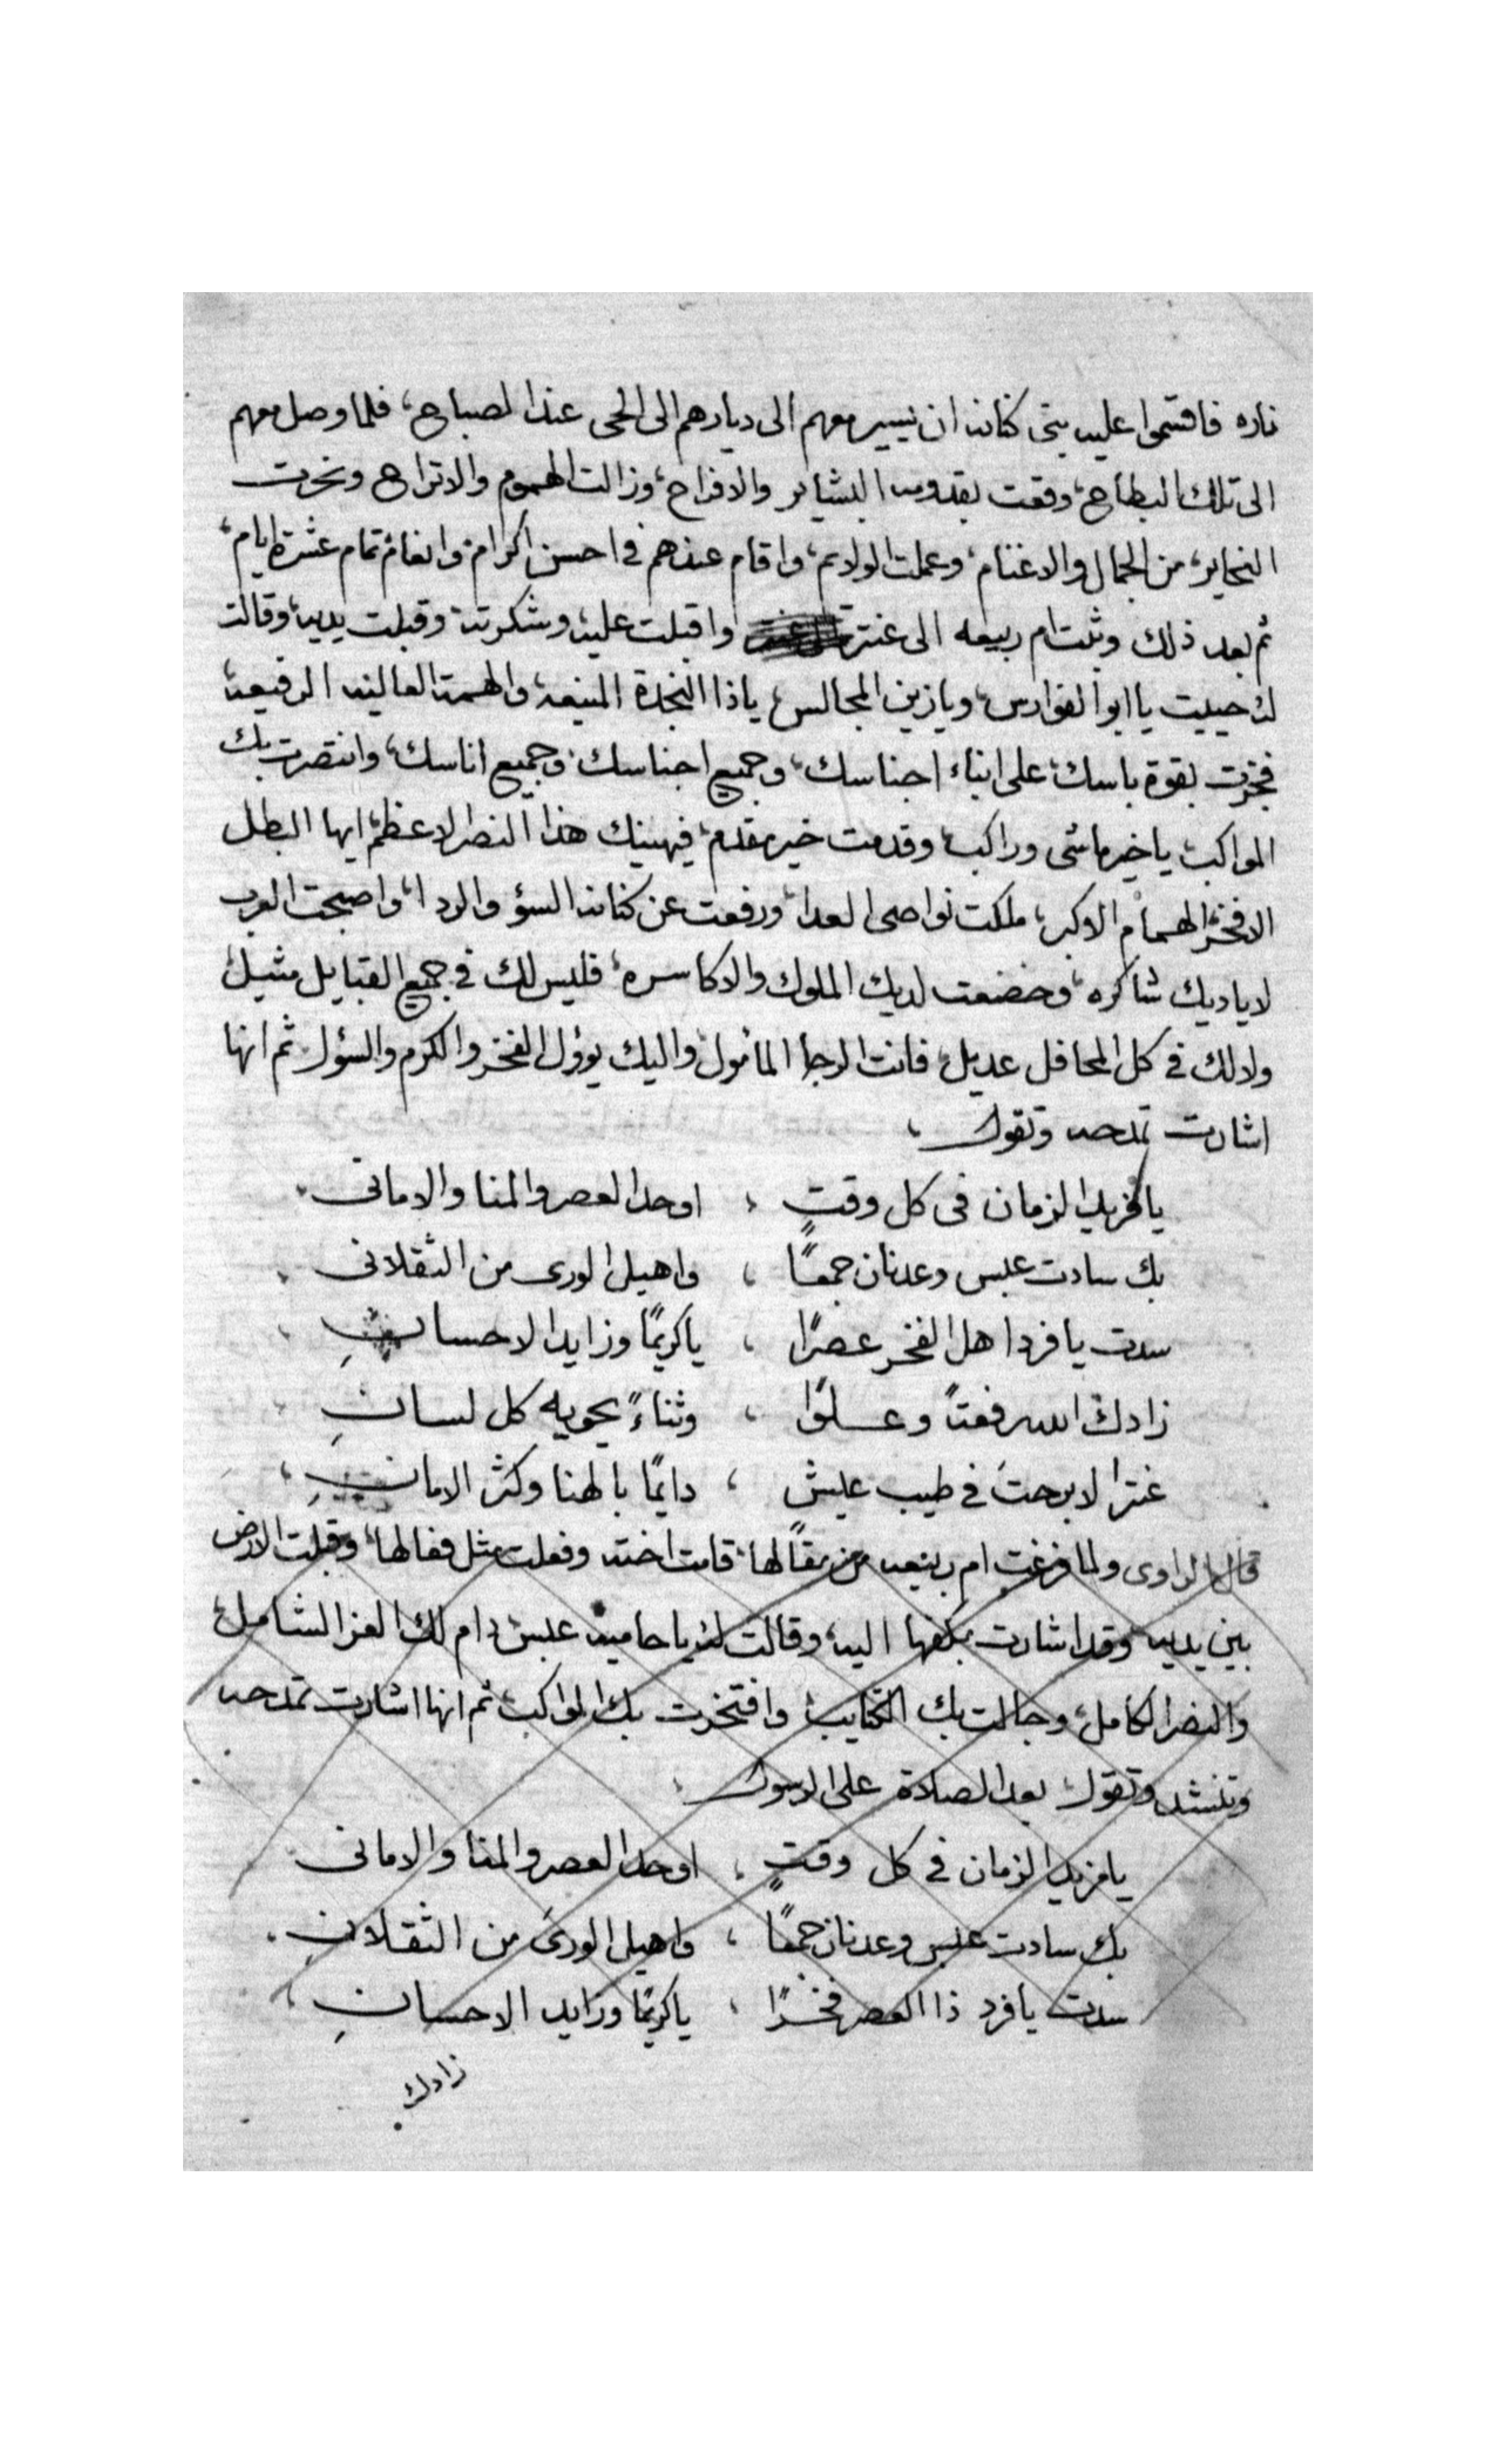 ناره فاقسموا عليه بنى كنانه ان يسير معهم الى ديارهم الى الحى عند الصباح، فلما وصل معهم
الى تلك البطاح، وقعت بقدومه البشاير والافراح، وزالت الهموم والاتراح ونحرت
النحاير، من الجمال والاغنام، وعملت الولايم، واقام عندهم فى احسن اكرام وانعام تمام عشرة ايام،
ثم بعد ذلك وثبت ام ربيعه الى عنتر واقبلت عليه وشكرته وقبلت يديه، وقالت
له حييت يا ابو الفوارس، ويا زين المجالس، ياذا النجدة المنيعه، والهمة العاليه الرفيعه،
فخرت بقوة باسك، على ابناء اجناسك، وجميع اجناسك وجميع اناسك، وانتصرت بك
المواكب، يا خير ماشى وراكب، وقدمت خير مقدم، فيهنيك هذا النصر الاعظم، ايها البطل
الافخر الهمام الاكبر، ملكت نواصى العدا، ورفعت عن كنانه السؤ والردا، واصبحت العرب
لاياديك شاكره، وخضعت لديك الملوك والاكاسره، فليس لك فى جميع القبايل مثيل،
ولا لك فى كل المحافل عديل، فانت الرجا المأمول، واليك يؤول الفخر والكرم والسؤل، ثم انها
اشارت تمدحه وتقول،
يا فريد الزمان فى كل وقتٍ ، اوحد العصر والمنا والامانى
بك سادت عبس وعدنان جمعًا ، واهيل الورى من الثقلانى
سدت يا فرد اهل الفخر عصرًا ، يا كريمًا وزايد الاحسانِ
زادك الله رفعتاً وعلوًا ، وثناءً يحويه كل لسانِ
عنترا لا برحتَ فى طيب عيش ، دايمًا بالهنا وكثر الامانِ
قال الراوى ولما فرغت ام ربيعه من مقالها، قامت اخته وفعلت مثل فعالها، وقبلت الارض
بين يديه وقد اشارت بكفها اليه، وقالت له يا حامية عبس دام لك العز الشامل،
والنصر الكامل، وجالت بك الكتايب وافتخرت بك المواكب، ثم انها اشارت تمدحه
وتنشد وتقول بعد الصلاة على الرسول
يا فريد الزمان فى كل وقتٍ ، اوحد العصر والمنا والامانى
بك سادت عبس وعدنان جمعًا ، واهيل الورى من الثقلانِ
سدت يا فرد ذا العصر فخرًا ، يا كريمًا وزايد الاحسانِ
زادك